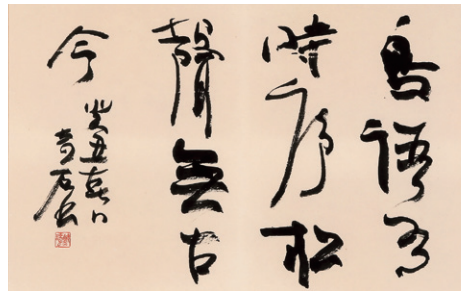 鳥語有
時序松
聲無古
今
癸丑春日